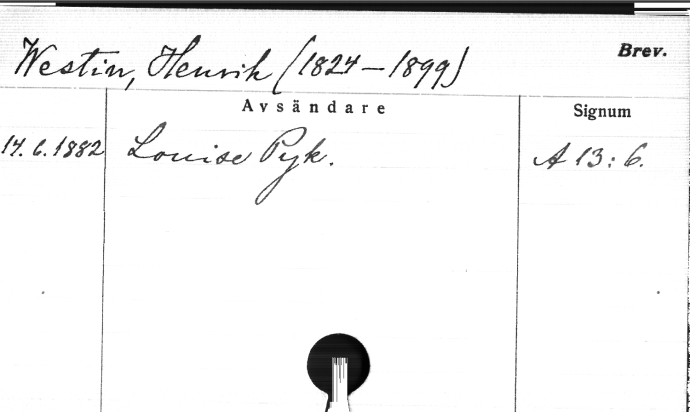 Westin, Henrik (1824-1899) Brev.
Avsändare Signum
14.6.1882 Louise Pyk. A 13:6.